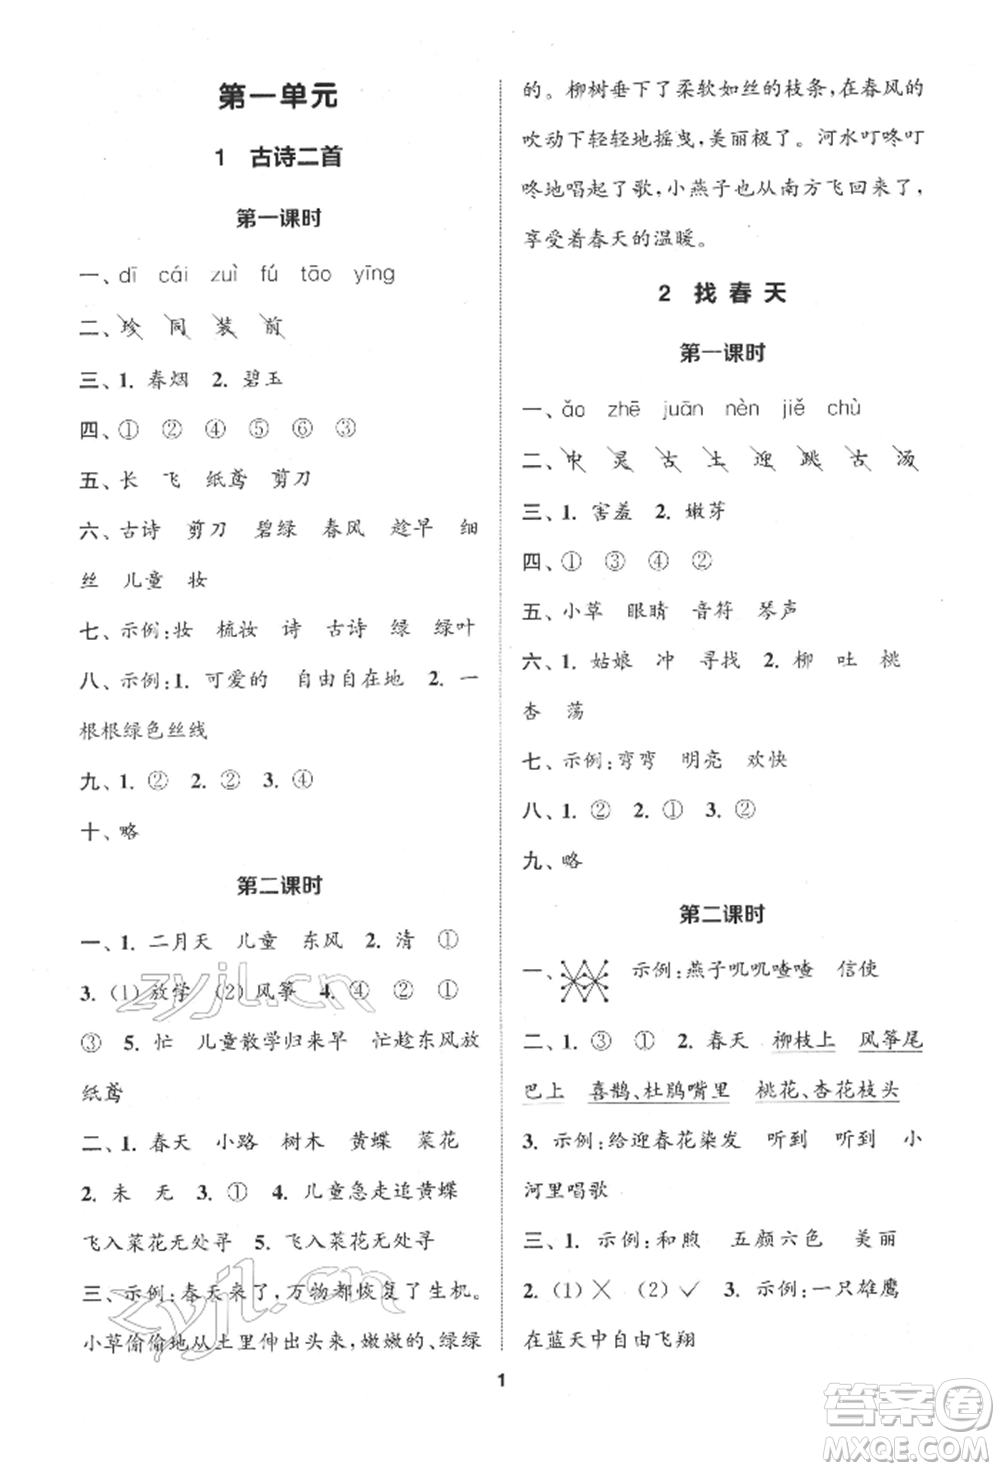 第一单元
1 古诗二首
第一课时
一、dī cái zuì fú tāo yīng
二、珍 同 装 前
三、1. 春烟 2. 碧玉
四、① ② ④ ⑤ ⑥ ③
五、长 飞 纸鸢 剪刀
六、古诗 剪刀 碧绿 春风 趁早 细
丝 儿童 妆
七、示例:妆 梳妆 诗 古诗 绿 绿叶
八、示例:1. 可爱的 自由自在地 2. 一
根根绿色丝线
九、1. ② 2. ② 3. ④
十、略
第二课时
一、1. 二月天 儿童 东风 2. 清 ①
3. (1)放学 (2)风筝 4. ④ ② ①
③ 5. 忙 儿童散学归来早 忙趁东风放
纸鸢
二、1. 春天 小路 树木 黄蝶 菜花
2. 未 无 3. ① 4. 儿童急走追黄蝶
飞入菜花无处寻 5. 飞入菜花无处寻
三、示例:春天来了,万物都恢复了生机。
小草偷偷地从土里伸出头来,嫩嫩的、绿绿
的。柳树垂下了柔软如丝的枝条,在春风的
吹动下轻轻地摇曳,美丽极了。河水叮咚叮
咚地唱起了歌,小燕子也从南方飞回来了,
享受着春天的温暖。
2 找春天
第一课时
一、ǎo zhē juān nèn jiě chù
二、中 灵 古 土 迎 跳 古 汤
三、1. 害羞 2. 嫩芽
四、① ③ ④ ②
五、小草 眼睛 音符 琴声
六、1. 姑娘 冲 寻找 2. 柳 吐 桃
杏 荡
七、示例:弯弯 明亮 欢快
八、1. ② 2. ① 3. ②
九、略
第二课时
一、 示例:燕子叽叽喳喳 信使
二、1. ③ ① 2. 春天 柳枝上 风筝尾
巴上 喜鹊、杜鹃嘴里 桃花、杏花枝头
3. 示例:给迎春花染发 听到 听到 小
河里唱歌
三、1. 示例:和煦 五颜六色 美丽
2. (1)╳ (2)✓ 3. 示例:一只雄鹰
在蓝天中自由飞翔
1
zyjl.cn
zyjl.cn
答案圈
MXQE.COM